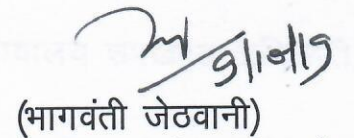 9/10/19
(भागवंती जेठवानी)